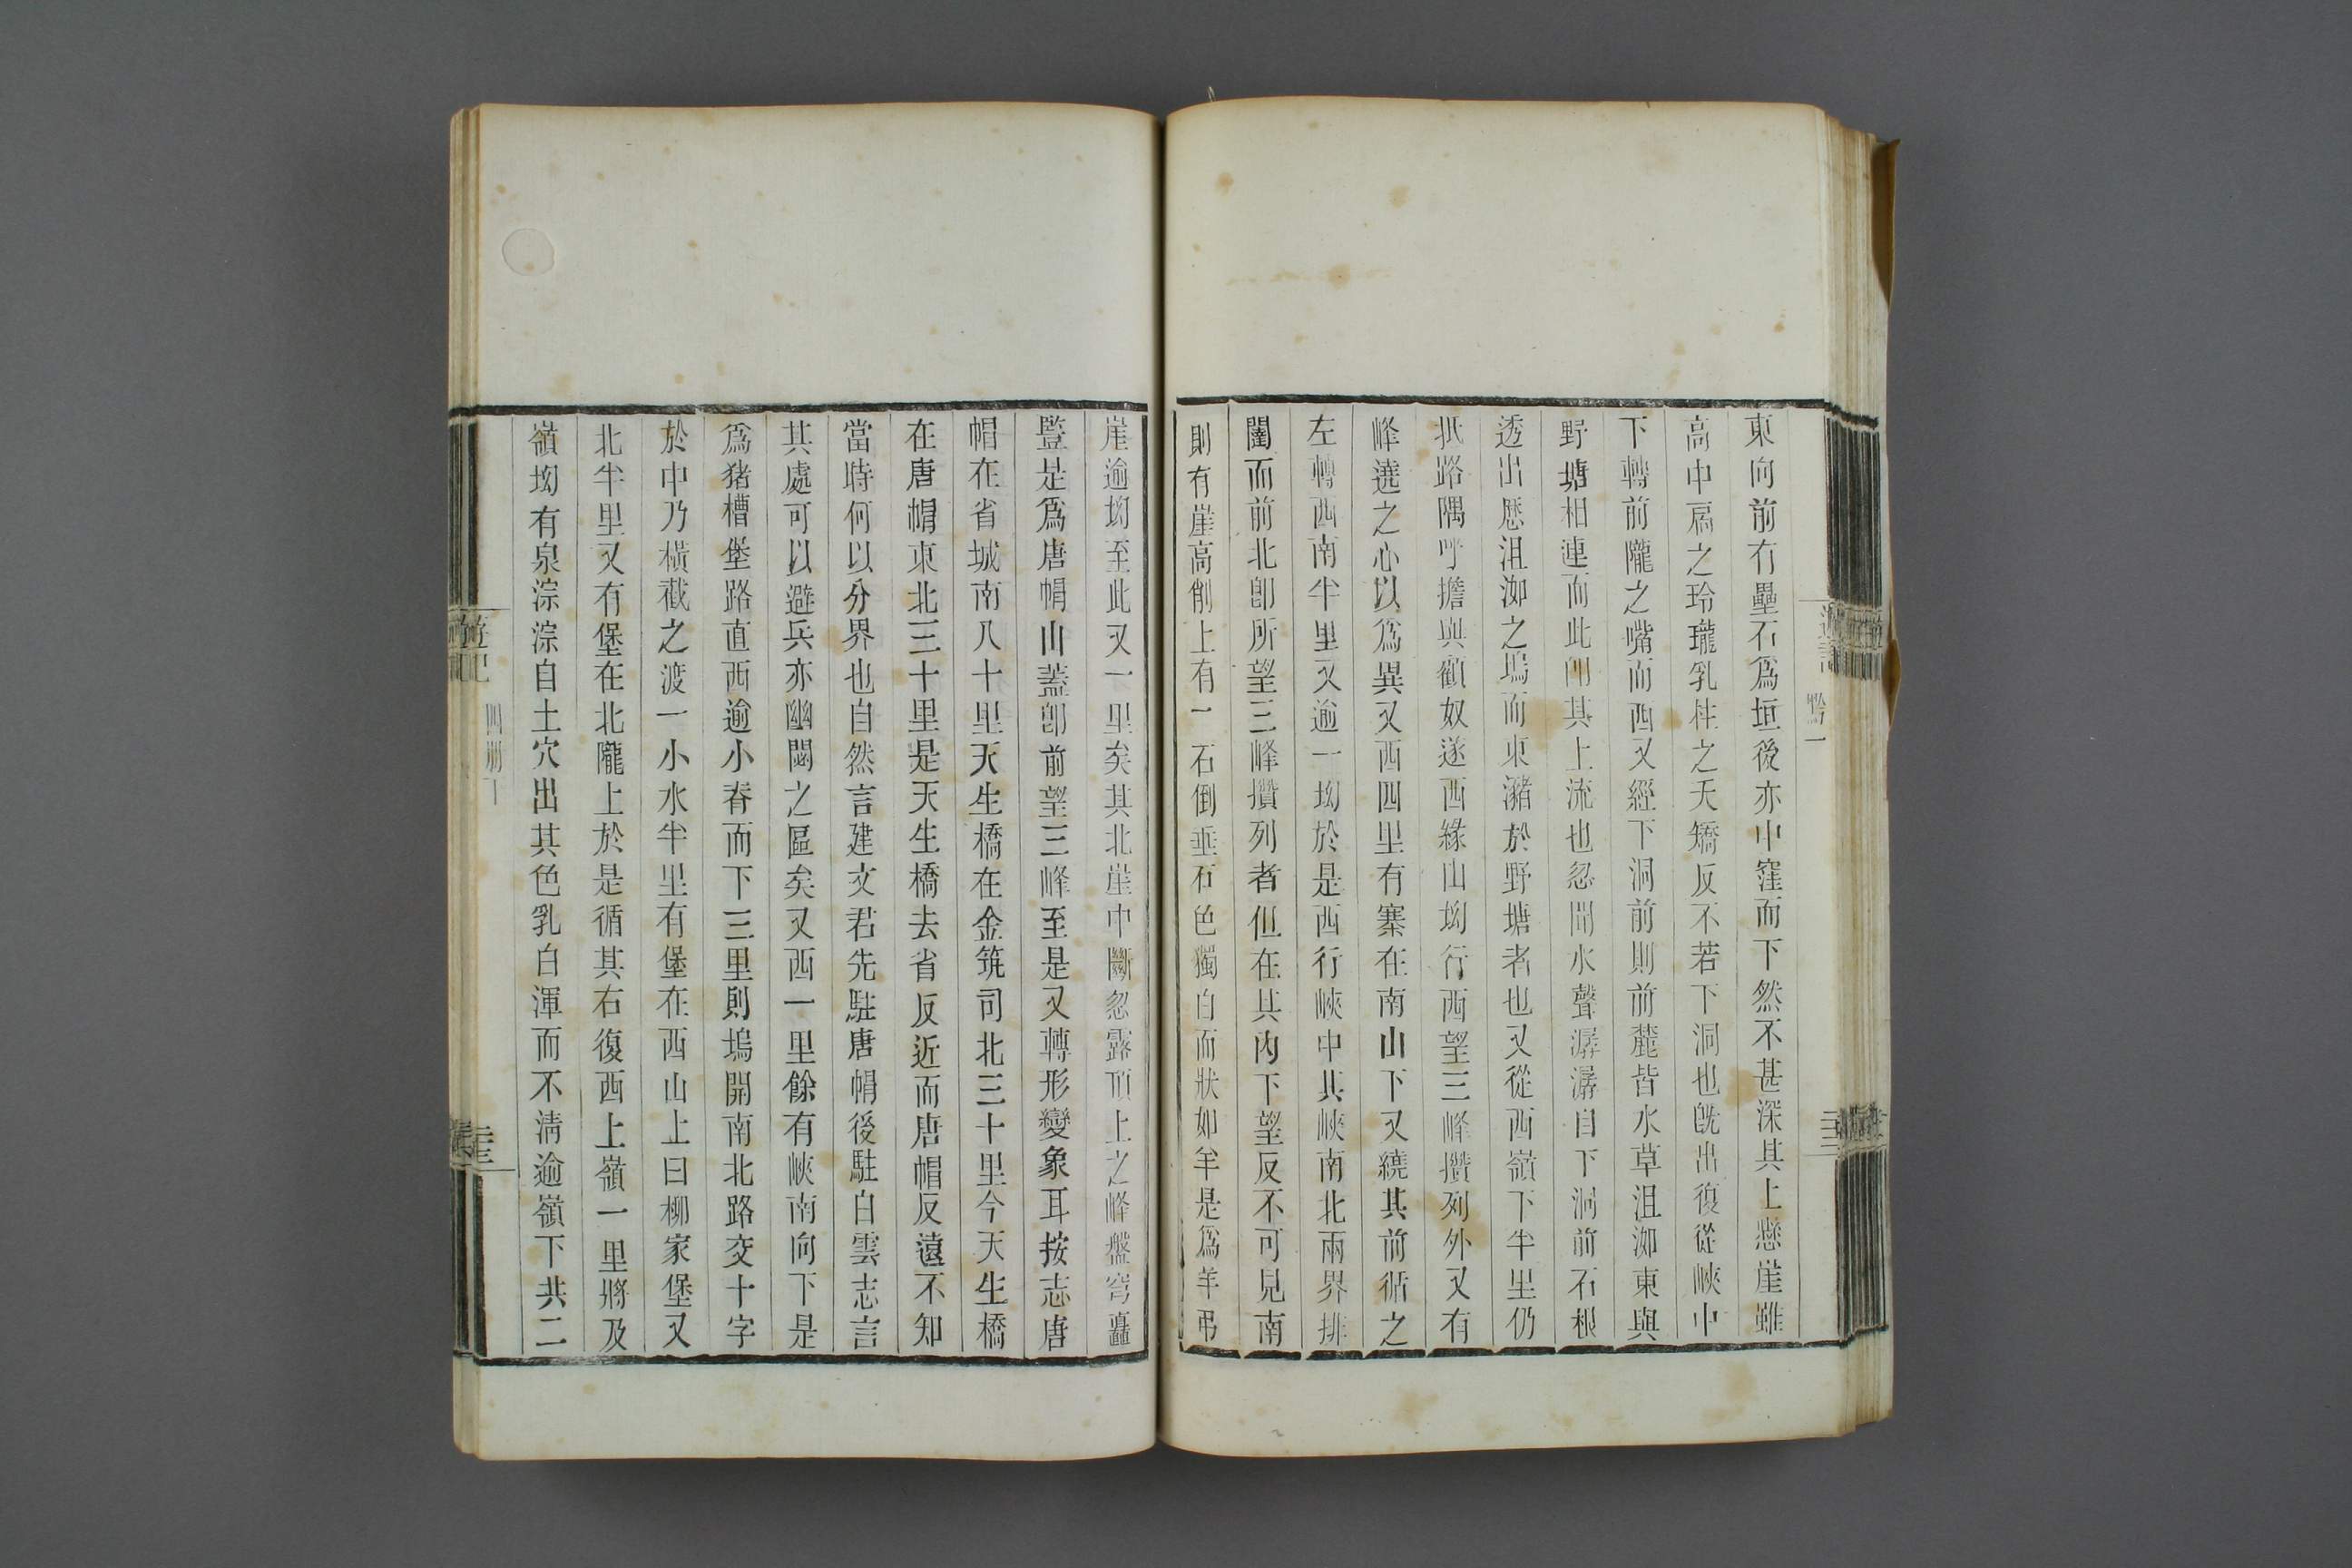 東向前有壘石爲垣後亦中窪而下然不甚深其上懸崖雖
高中扃之玲瓏乳柱之夭矯反不若下洞也旣出復從峽中
下轉前隴之嘴而西又經下洞前則前麓皆水草沮洳東與
野塘相連而此卽其上流也忽聞水聲潺潺自下洞前石根
透出歷沮洳之塢而東瀦於野塘者也又從西嶺下半里仍
抵路隅呼擔與顧奴遂西緣山坳行西望三峰攢列外又有
峰遶之心以爲異又西四里有寨在南山下又繞其前循之
左轉西南半里又逾一坳於是西行峽中其峽南北兩界排
闥而前北卽所望三峰攢列者但在其內下望反不可見南
則有崖高削上有一石倒垂石色獨白而狀如羊是爲羊弔
崖逾坳至此又一里矣其北崖中斷忽露頂上之峰盤穹矗
豎是爲唐帽山蓋卽前望三峰至是又轉形變象耳按志唐
帽在省城南八十里天生橋在金筑司北三十里今天生橋
在唐帽東北三十里是天生橋去省反近而唐帽反遠不知
當時何以分界也自然言建文君先駐唐帽後駐白雲志言
其處可以避兵亦幽閟之區矣又西一里餘有峽南向下是
爲猪槽堡路直西逾小脊而下三里則塢開南北路交十字
於中乃橫截之渡一小水半里有堡在西山上曰柳家堡又
北半里又有堡在北隴上於是循其右復西上嶺一里將及
嶺坳有泉淙淙自土穴出其色乳白渾而不淸逾嶺下共二